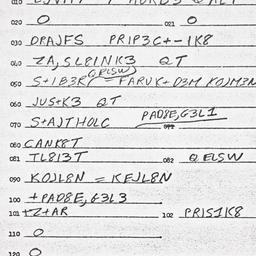 020 O 021 O
030 DPAJFS PRIP3C+-1K8
040 ZA,SL8INK3 QT
QELSW
050 S+1B3K = FARUK+D3M KOJM3N
060 JUS+K3 QT
070 S+AJTHOLC PAD8E,G3L1
080 CANK8T
081 TL8I3T 082 QELSW
090 KOJL8N = KEJL8N
100 +PAD8E,G3L3
101 +Z+AR 102 PRIS1K8
110 O
120 O